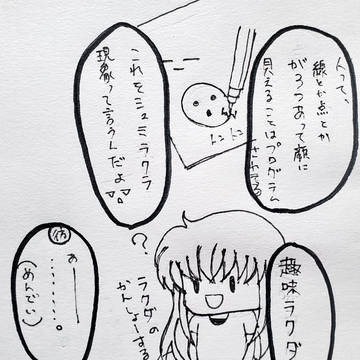 人って、
線とか点とか
が3つあって顔に
見えることはプログラム
されてる
これをシュミラクラ
現象って言うんだよ
トントン
趣味ラクダ
?
ラクダの
かんしょーする
あー
……。
(めんどい)